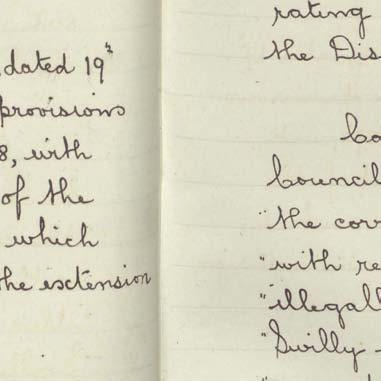 dated 19th
provisions
8, with
of the
which
the extension
rating
the Dis
Co
Council
"the cov
"with re
"illegall
"Swilly